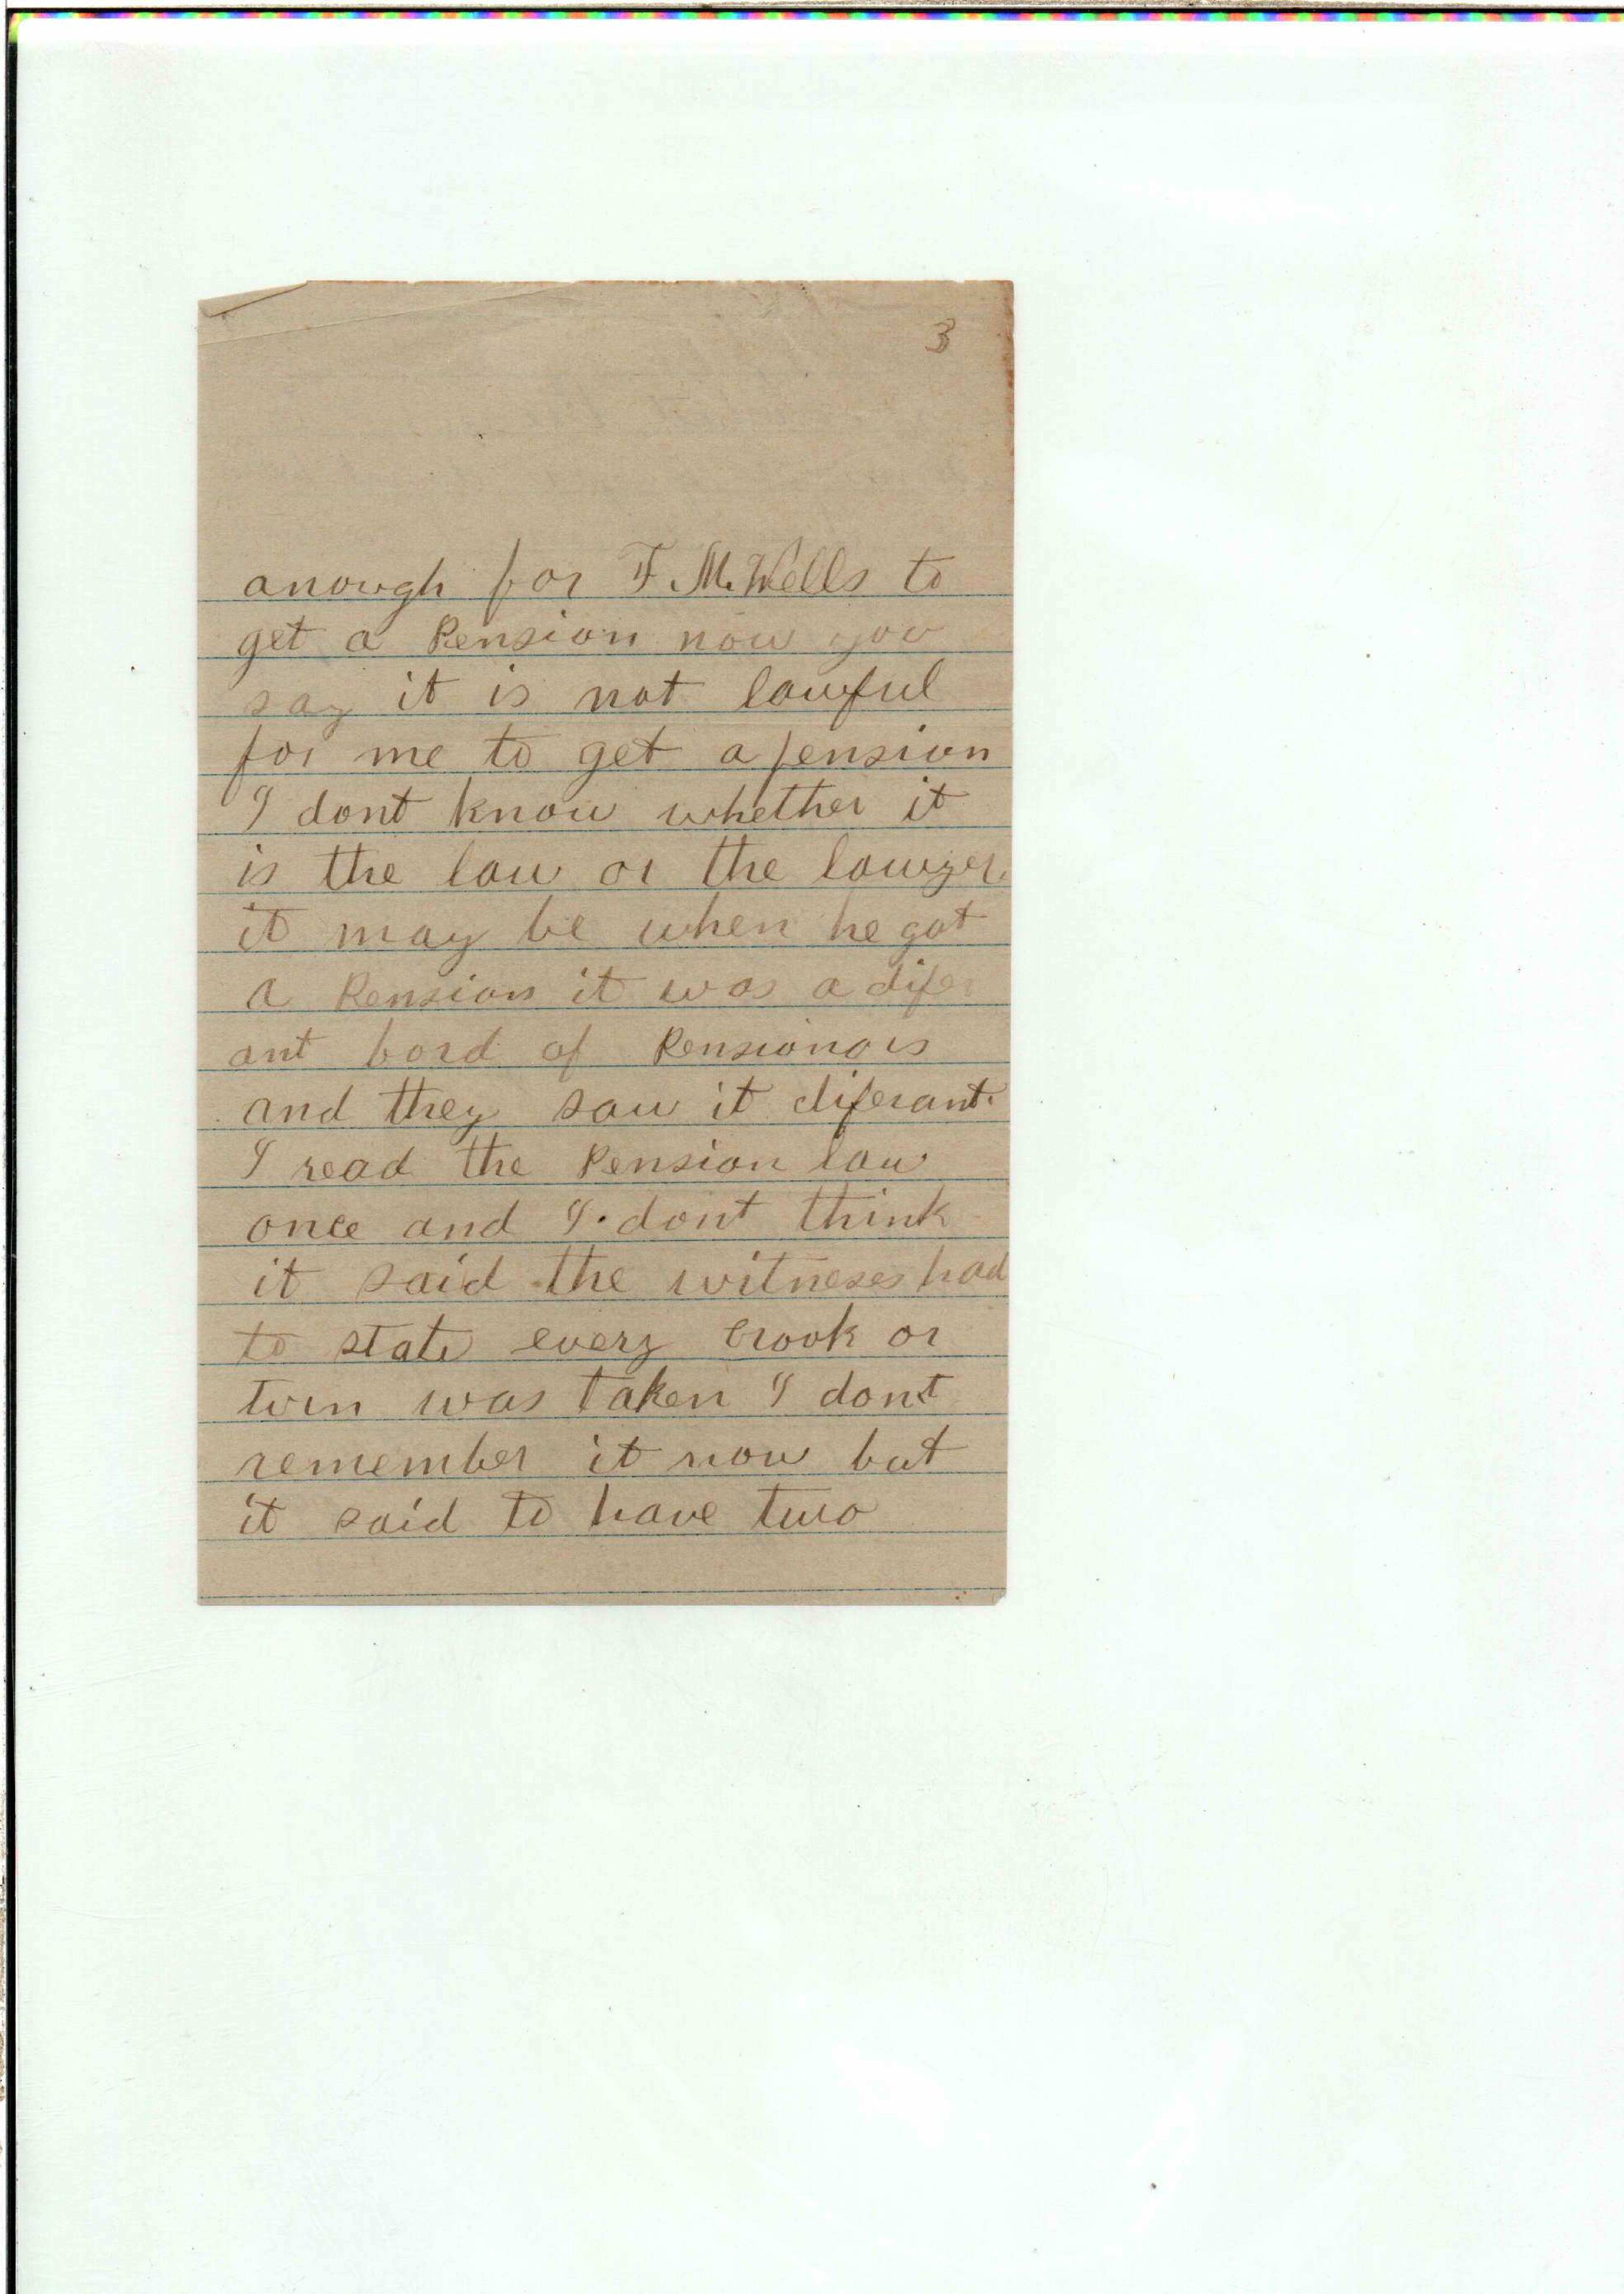 3
anough for F. M. Wells to
get a Pension now you
say it is not lawful
for me to get a pension
I dont know whether it
is the law or the lawyer.
it may be when he got
a Pension it was a difer
ant bord of Pensionors
and they saw it diferant.
I read the Pension law
once and I dont think
it said the witneses had
to state every crook or
turn was taken I dont
remember it now but
it said to have two